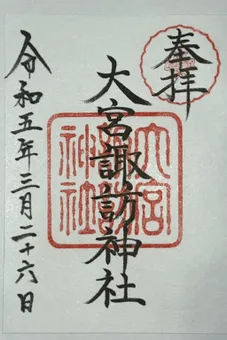 奉拝
大宮諏訪神社
令和五年三月二十六日
大宮
神社